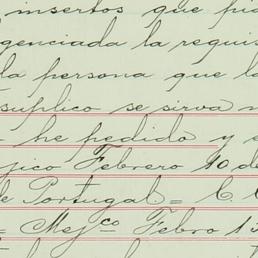 insertos que pi
genciada la requis
la persona que l
suplico se sirva
he pedido y e
jico Febrero 10 d
e Portugal = C. C
= Mejco Febro 13